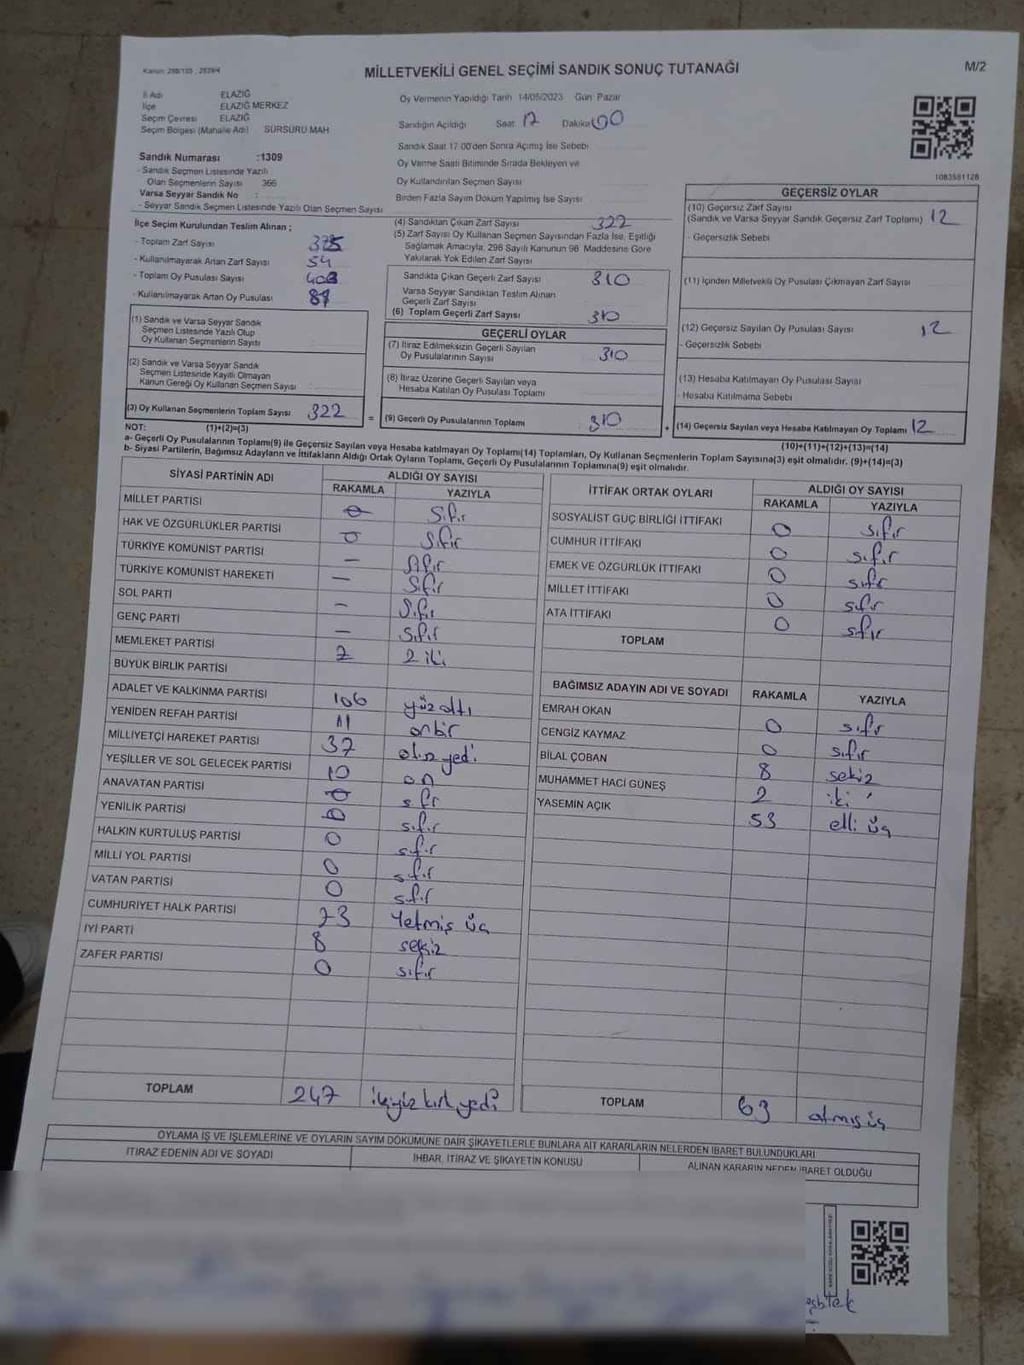 Kanun: 298/105 , 2839/4
MİLLETVEKİLİ GENEL SEÇİMİ SANDIK SONUÇ TUTANAĞI
M/2
İl Adı ELAZIĞ
İlçe ELAZIĞ MERKEZ
Seçim Çevresi ELAZIĞ
Seçim Bölgesi (Mahalle Adı) SÜRSÜRÜ MAH
Oy Vermenin Yapıldığı Tarih 14/05/2023 Gün Pazar
Sandığın Açıldığı Saat 17 Dakika 00
Sandık Saat 17:00'den Sonra Açılmış İse Sebebi
Oy Verme Saati Bitiminde Sırada Bekleyen ve
Oy Kullandırılan Seçmen Sayısı
Birden Fazla Sayım Döküm Yapılmış İse Sayısı
1083581128
Sandık Numarası :1309
- Sandık Seçmen Listesinde Yazılı
Olan Seçmenlerin Sayısı 366
Varsa Seyyar Sandık No :
- Seyyar Sandık Seçmen Listesinde Yazılı Olan Seçmen Sayısı
İlçe Seçim Kurulundan Teslim Alınan ;
- Toplam Zarf Sayısı
- Kullanılmayarak Artan Zarf Sayısı 54
- Toplam Oy Pusulası Sayısı
- Kullanılmayarak Artan Oy Pusulası
(1) Sandık ve Varsa Seyyar Sandık
Seçmen Listesinde Yazılı Olup
Oy Kullanan Seçmenlerin Sayısı
(2) Sandık ve Varsa Seyyar Sandık
Seçmen Listesinde Kayıtlı Olmayan
Kanun Gereği Oy Kullanan Seçmen Sayısı
(3) Oy Kullanan Seçmenlerin Toplam Sayısı 322
(1)+(2)=(3)
(4) Sandıktan Çıkan Zarf Sayısı 322
(5) Zarf Sayısı Oy Kullanan Seçmen Sayısından Fazla İse, Eşitliği
Sağlamak Amacıyla, 298 Sayılı Kanunun 98. Maddesine Göre
Yakılarak Yok Edilen Zarf Sayısı
Sandıkta Çıkan Geçerli Zarf Sayısı 310
Varsa Seyyar Sandıktan Teslim Alınan
Geçerli Zarf Sayısı
(6) Toplam Geçerli Zarf Sayısı 310
GEÇERLİ OYLAR
(7) İtiraz Edilmeksizin Geçerli Sayılan
Oy Pusulalarının Sayısı 310
(8) İtiraz Üzerine Geçerli Sayılan veya
Hesaba Katılan Oy Pusulası Toplamı
= (9) Geçerli Oy Pusulalarının Toplamı 310 +
GEÇERSİZ OYLAR
(10) Geçersiz Zarf Sayısı
(Sandık ve Varsa Seyyar Sandık Geçersiz Zarf Toplamı) 12
- Geçersizlik Sebebi
(11) İçinden Milletvekili Oy Pusulası Çıkmayan Zarf Sayısı
(12) Geçersiz Sayılan Oy Pusulası Sayısı 12
- Geçersizlik Sebebi
(13) Hesaba Katılmayan Oy Pusulası Sayısı
- Hesaba Katılmama Sebebi
(14) Geçersiz Sayılan veya Hesaba Katılmayan Oy Toplamı 12
(10)+(11)+(12)+(13)=(14)
NOT:
a- Geçerli Oy Pusulalarının Toplamı(9) ile Geçersiz Sayılan veya Hesaba katılmayan Oy Toplamı(14) Toplamları, Oy Kullanan Seçmenlerin Toplam Sayısına(3) eşit olmalıdır. (9)+(14)=(3)
b- Siyasi Partilerin, Bağımsız Adayların ve İttifakların Aldığı Ortak Oyların Toplamı, Geçerli Oy Pusulalarının Toplamına(9) eşit olmalıdır.
SİYASİ PARTİNİN ADI ALDIĞI OY SAYISI
RAKAMLA YAZIYLA
MİLLET PARTİSİ 0 Sıfır
HAK VE ÖZGÜRLÜKLER PARTİSİ 0 Sıfır
TÜRKİYE KOMÜNİST PARTİSİ – Sıfır
TÜRKİYE KOMÜNİST HAREKETİ – Sıfır
SOL PARTİ – Sıfır
GENÇ PARTİ – Sıfır
MEMLEKET PARTİSİ 2 2 iki
BÜYÜK BİRLİK PARTİSİ
ADALET VE KALKINMA PARTİSİ 106 yüz altı
YENİDEN REFAH PARTİSİ 11 onbir
MİLLİYETÇİ HAREKET PARTİSİ 37 otuz yedi
YEŞİLLER VE SOL GELECEK PARTİSİ 10 on
ANAVATAN PARTİSİ 0 sıfır
YENİLİK PARTİSİ 0 sıfır
HALKIN KURTULUŞ PARTİSİ 0 sıfır
MİLLİ YOL PARTİSİ 0 sıfır
VATAN PARTİSİ 0 sıfır
CUMHURİYET HALK PARTİSİ 73 Yetmiş üç
İYİ PARTİ 8 sekiz
ZAFER PARTİSİ 0 sıfır
TOPLAM 247 ikiyüz kırk yedi
İTTİFAK ORTAK OYLARI ALDIĞI OY SAYISI
RAKAMLA YAZIYLA
SOSYALİST GÜÇ BİRLİĞİ İTTİFAKI 0 sıfır
CUMHUR İTTİFAKI 0 sıfır
EMEK VE ÖZGÜRLÜK İTTİFAKI 0 sıfır
MİLLET İTTİFAKI 0 sıfır
ATA İTTİFAKI 0 sıfır
TOPLAM
BAĞIMSIZ ADAYIN ADI VE SOYADI RAKAMLA YAZIYLA
EMRAH OKAN 0 sıfır
CENGİZ KAYMAZ 0 sıfır
BİLAL ÇOBAN 8 sekiz
MUHAMMET HACI GÜNEŞ 2 iki
YASEMİN AÇIK 53 elli üç
TOPLAM 63 atmış üç
OYLAMA İŞ VE İŞLEMLERİNE VE OYLARIN SAYIM DÖKÜMÜNE DAİR ŞİKAYETLERLE BUNLARA AİT KARARLARIN NELERDEN İBARET BULUNDUKLARI
İTİRAZ EDENİN ADI VE SOYADI İHBAR, İTİRAZ VE ŞİKAYETİN KONUSU ALINAN KARARIN NEDEN İBARET OLDUĞU